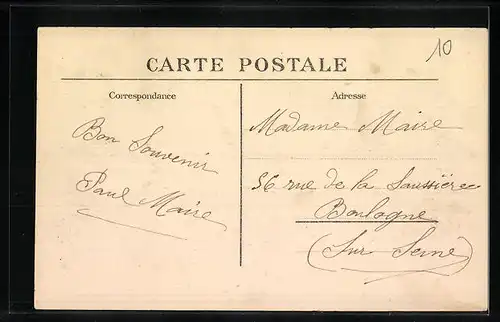 10
CARTE POSTALE
Correspondance
Bon Souvenir
Paul Maire
Adresse
Madame Maire
56 rue de la Saussière
Boulogne
(Sur Seine)